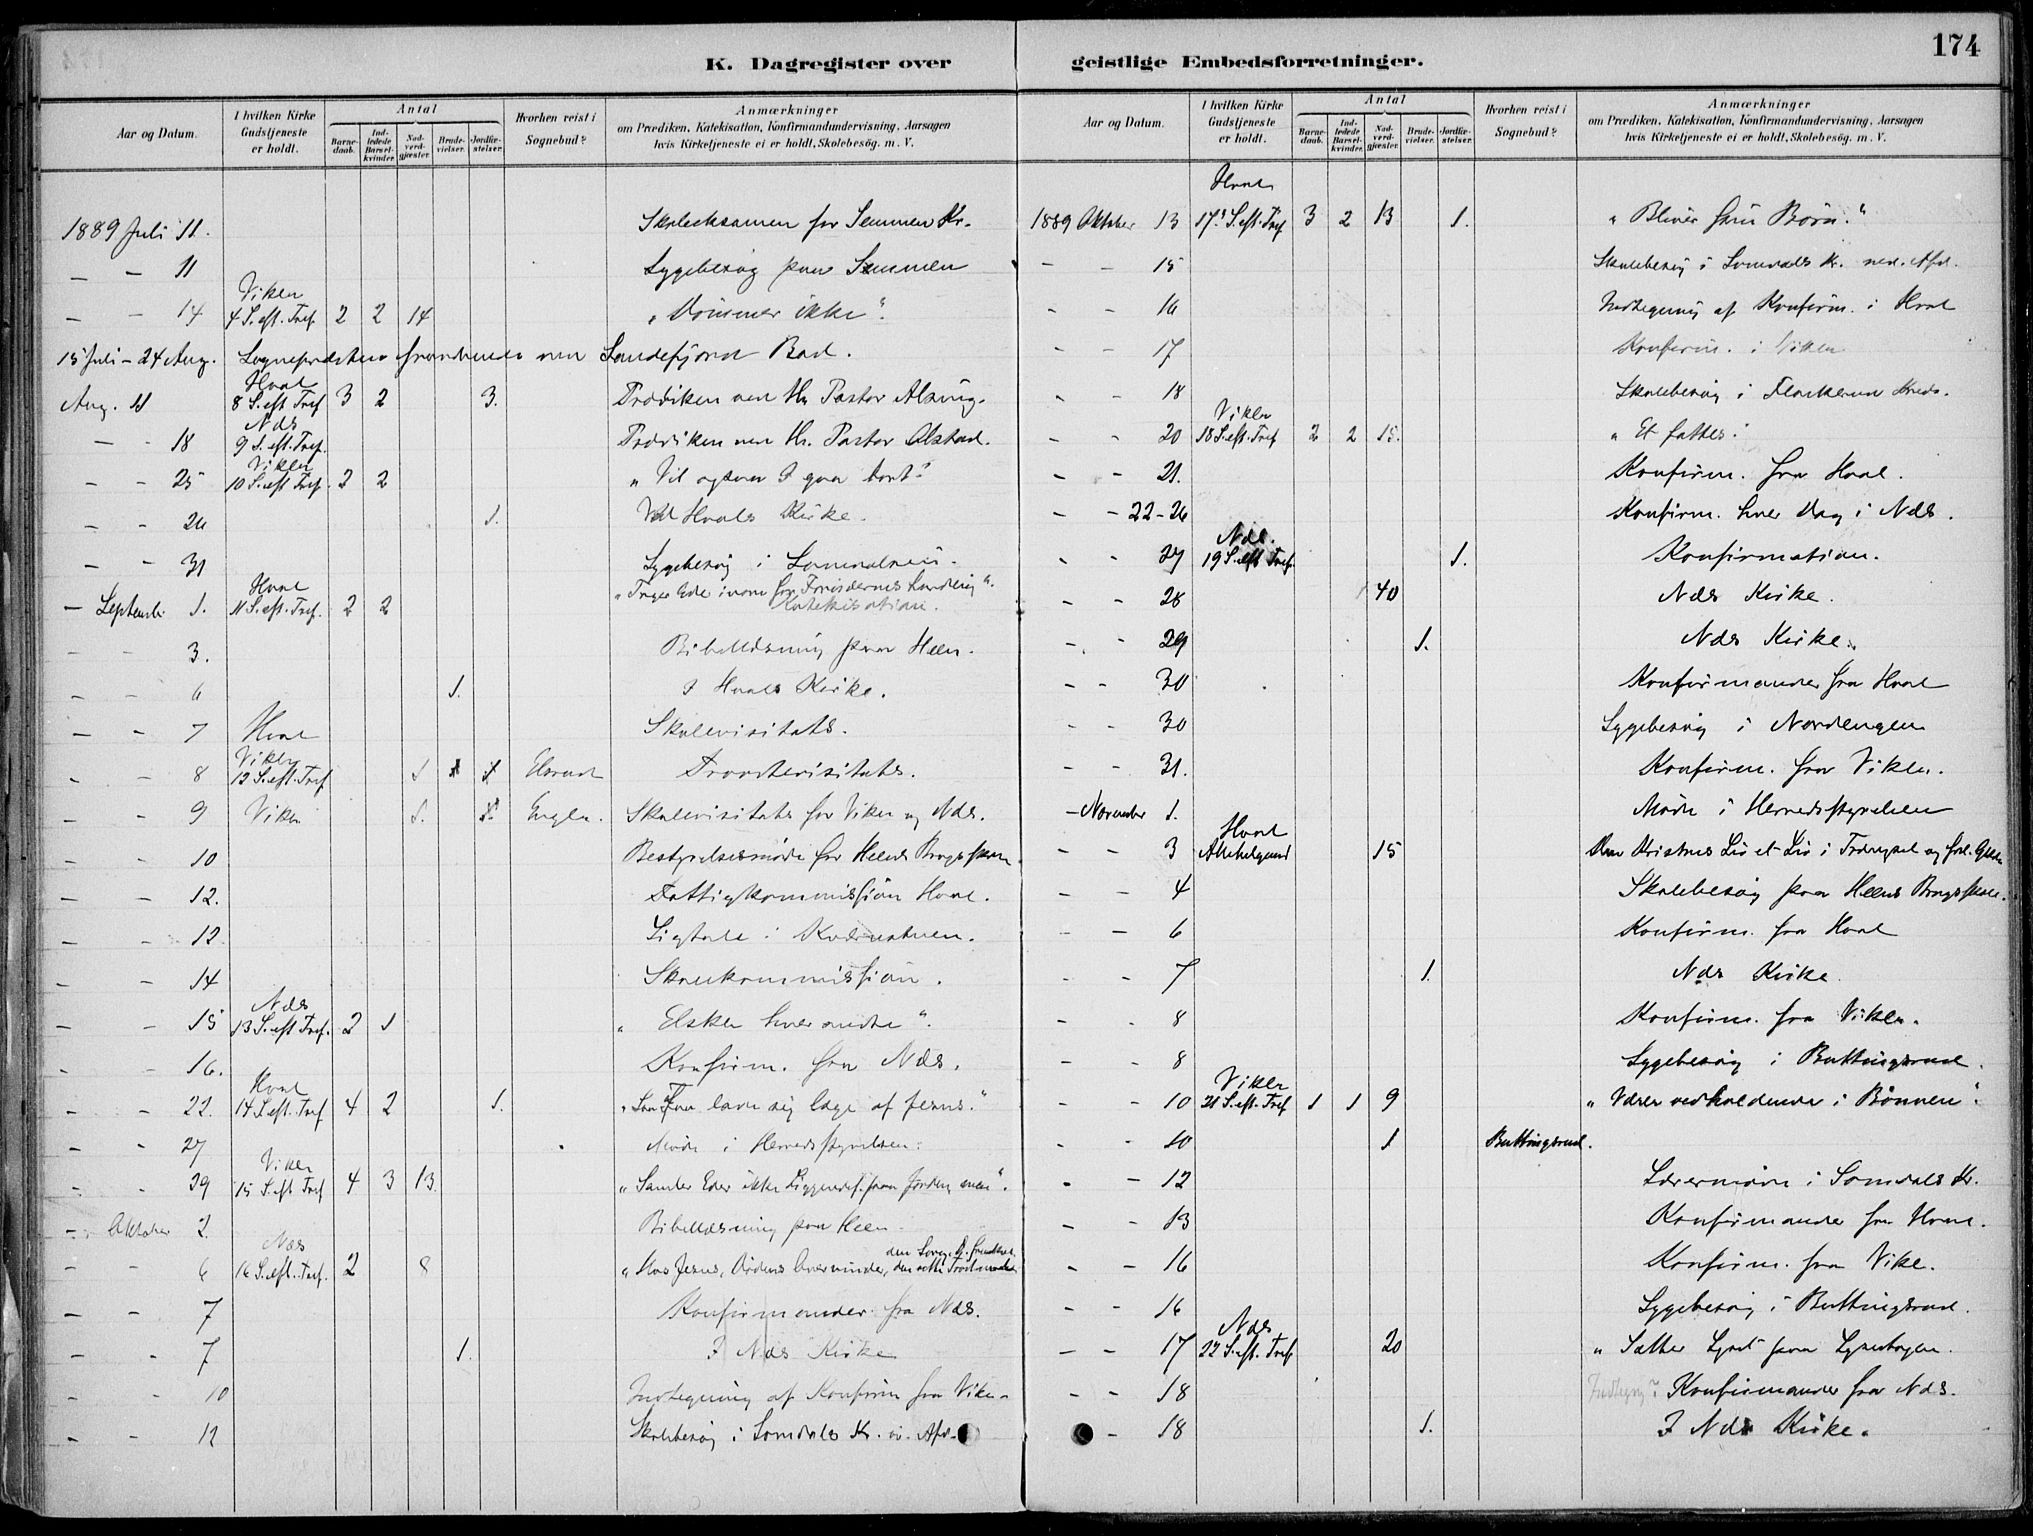 174
K. Dagregister over geistlige Embedsforretninger.
Aar og Datum.
I hvilken Kirke Gudstjeneste er holdt.
Antal
Barne-daab.
Ind-ledede Barsel-kvinder.
Nad-verd-gjæster.
Brude-vielser.
Jordfæ-stelser.
Hvorhen reist i Sognebud?
Anmærkninger
om Prædiken, Katekisation, Konfirmandundervisning, Aarsagen
hvis Kirketjeneste ei er holdt, Skolebesög. m. V.
1889 Juli 11. Skoleeksamen for Semmen Kr.
— – 11 Sygebesøg paa Semmen
Viker
— – 14 4 S. eft. Tref. 2 2 14 „Dømmer ikke“.
15 Juli – 24 Aug. Sognepræsten fraværende ved Sandefjord Bad.
Hval
Aug. 11 8 S. eft. Tref 3 2 3. Prædiken ved Hr. Pastor Alsing.
Næs
— – 18 9 S. eft. Tref. Prædiken ved Hr. Pastor Alstad.
Viker
– – 25 10 S. eft. Tref. 2 2 „Vil ogsaa I gaa bort?
– – 26 1. Ved Hvals Kirke.
– – 31 Sygebesøg i
Hval
— Septemb. 1. 11 S. eft. Tref. 2 2 Katekisation.
– – 3. Bibellæsning paa Heen.
– – 6 1. I Hvals Kirke.
– – 7 Hval Skolevisitats.
Viker
– – 8 12 S. eft. Tref 1 1 1 Elsrud Provstevisitats.
– – 9 Viker 1. 1 Skolevisitats for Viker og Næs.
– – 10 Bestyrelsesmøde for Heens Brugsskole
– – 12. Fattigkommission Hval.
– – 12 Ligtale i
– – 14 Skolekommission.
Næs
– – 15 13 S. eft Tref. 2 1 „Elsker hverandre“.
– – 16. Konfirm. fra Næs.
Hval
– – 22. 14 S. eft. Tref 4 2 1.
– – 27 Møde i Herredsstyrelsen.
Viker
– – 29 15 S. eft Tref 4 3 13 „Samler Eder ikke Liggendef. paa Jorden,
– Oktober 2. Bibellæsning paa Heen.
Næs
– – 6 16 S. eft. Tref. 2 8 „Hos Jesus, Dødens Overvinder,
– – 7 Konfirmander fra Næs.
– – 7 1. I Næs Kirke
– – 10 Indtegning af Konfirm fra Viker
– – 12 Skolebesøg i Somdals Kr.
Aar og Datum.
I hvilken Kirke Gudstjeneste er holdt.
Antal
Barne-daab.
Ind-ledede Barsel-kvinder.
Nad-verd-gjæster.
Brude-vielser.
Jordfæ-stelser.
Hvorhen reist i Sognebud?
Anmærkninger
om Prædiken, Katekisation, Konfirmandundervisning, Aarsagen
hvis Kirketjeneste ei er holdt, Skolebesög. m. V.
Hval
1889 Oktober 13 17. S. eft. Tref 3 2 13 1. „Bliver som Børn.“
– – 15 Skolebesøg i Somdals Kr. ned. Afd.
– – 16 Indtegning af Konfirm. i Hval
– – 17 Konfirm. i Viker
– – 18 Skolebesøg i Kreds.
Viker
– – 20 18 S. eft. Tref 2 2 15. „Et fattes.
– – 21. Konfirm. fra Hval.
– – 22–26 Konfirm. hver Dag i Næs.
Næs.
– – 27 19 S. eft Tref. 1. Konfirmation.
– – 28 40 Næs Kirke.
– – 29 1. Næs Kirke.
– – 30 Konfirmander fra Hval
– – 30 Sygebesøg i Nordengen
– – 31. Konfirm. fra Viker.
– November 1. Møde i Herredsstyrelsen
Hval
– – 3 Allehelgend 15
– – 4 Skolebesøg paa Heens Brugsskole.
– – 6 Konfirm. fra Hval
– – 7 1. Næs Kirke.
– – 8 Konfirm. fra Viker.
– – 8 Sygebesøg i Buttingsrud.
Viker
– – 10 21 S. eft. Tref 1 1 9 „Værer vedholdende i Bønnen“.
– – 10 1 Buttingsrud.
– – 12 Lærermøde i Somdals Kr.
– – 13 Konfirmander fra Hval.
– – 16 Konfirm. fra Vike.
– – 16 Sygebesøg i Buttingsrud.
Næs
– – 17 22 S. eft. Tref 20 „Sætter Lyset paa Lysestagen.
– – 18 Konfirmander fra Næs.
– – 18 1. I Næs Kirke.